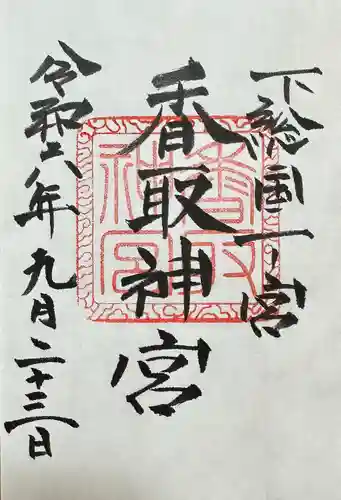 下総国一宮
香取神宮
令和六年九月二十三日
香取神宮